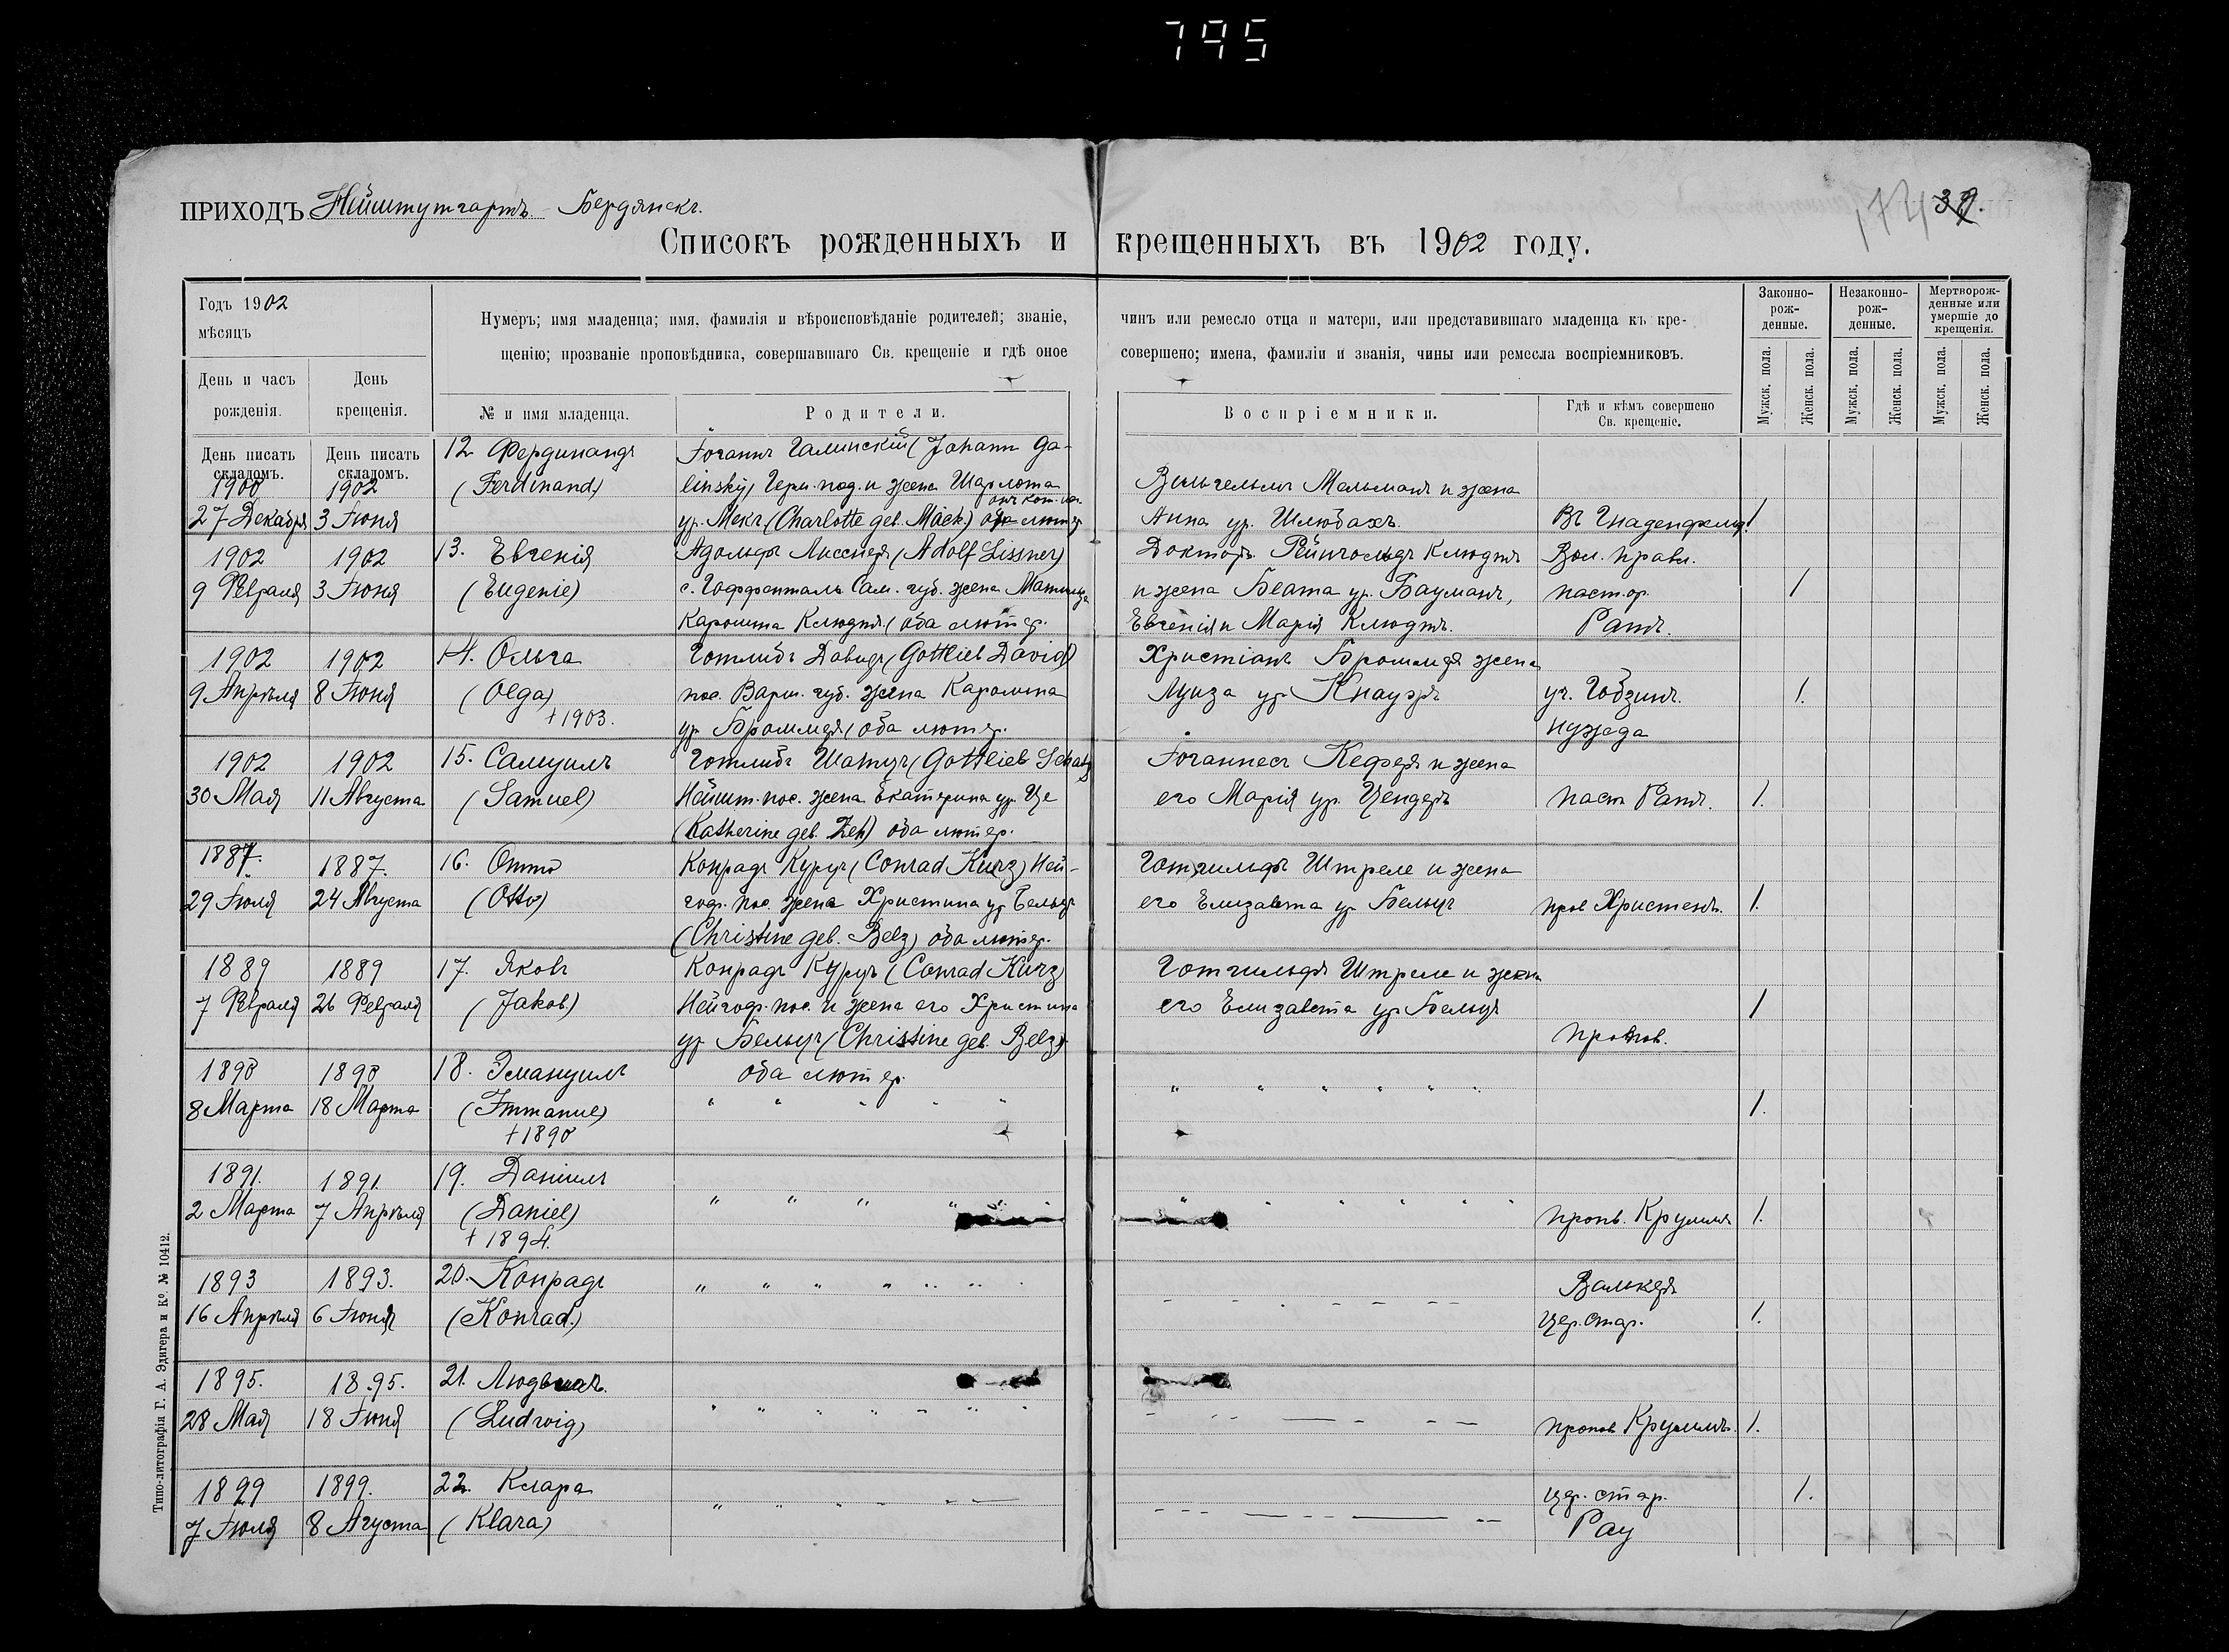 795
ПРИХОДЪ Нейштутгартъ - Бердянскъ.
174 39.
Списокъ рожденныхъ и крещенныхъ въ 1902 году.
Годъ 1902
мѣсяцъ
Нумеръ; имя младенца; имя, фамилія и вѣроисповѣданіе родителей; званіе, чинъ или ремесло отца и матери, или представившаго младенца къ кре-
щенію; прозваніе проповѣдника, совершавшаго Св. крещеніе и гдѣ оное совершено; имена, фамиліи и званія, чины или ремесла воспріемниковъ.
Законно-
рож-
денные.
Незаконно-
рож-
денные.
Мертворож-
денные или
умершіе до
крещенія.
День и часъ
рожденія.
День
крещенія.
№ и имя младенца.
Родители.
Воспріемники.
Гдѣ и кѣмъ совершено
Св. крещеніе.
Мужск. пола.
Женск. пола.
Мужск. пола.
Женск. пола.
Мужск. пола.
Женск. пола.
День писать
складомъ.
День писать
складомъ.
1900
27 Декабря
1902
3 Іюня
12 Фердинандъ
(Ferdinand)
Іоганнъ Галинскій (Johann Ga-
linsky) Герм. под. и жена Шарлота
ур. Мекъ (Charlotte geb. Mäck.) лютер
Вильгельмъ Мельманъ и жена
Анна ур. Шлюбахъ.
Въ Гнаденфельд.
1
1902
9 Февраля
1902
3 Іюня
13. Евгенія
(Eugenie)
Адольфъ Лисснеръ (Adolf Lissner)
с. Гоффенталь Сам. губ. жена Матильда
Каролина Клюдтъ. (оба лютер.
Докторъ Рейнгольдъ Клюдтъ
и жена Беата ур. Бауманъ,
Евгенія и Марія Клюдтъ.
Вол. правл.
пастор.
Ратъ.
1
1902
9 Апрѣля
1902
8 Іюня
14. Ольга
(Olga)
+ 1903.
Готлибъ Давидъ (Gottlieb David)
пос. Варш. губ. жена Каролина
ур. Броммеръ (оба лютер.
Христіанъ Броммеръ жена
Луиза ур Кнауэръ
уч. Гобзинъ.
нужда
1.
1902
30 Мая
1902
11 Августа
15. Самуилъ
(Samuel)
Готлибъ Шатцъ (Gottlieb Schatz
Нейшт. пос. жена Екатерина ур. Це
(Katherine geb. Zeh) оба лютер.
Іоганнесъ Кеферъ и жена
его Марія ур. Цендеръ
паст Ратъ.
1.
1887.
29 Іюля
1887.
24 Августа
16. Отто
(Otto)
Конрадъ Курцъ (Conrad Kurz) Ней-
гоф. пос. жена Христина ур Бельцъ
(Christine geb. Belz) оба лютер.
Готгильфъ Штреле и жена
его Елизавета ур Бельцъ
проп Христенъ.
1.
1889
7 Февраля
1889
26 Февраля
17. Яковъ
(Jakob)
Конрадъ Курцъ (Conrad Kurz)
Нейгоф. пос. и жена его Христина
ур Бельцъ (Christine geb. Belz)
оба лютер.
Готгильфъ Штреле и жена
его Елизавета ур Бельцъ
1
1890
8 Марта
1890
18 Марта
18. Эмануилъ
(Immanuel)
+ 1890
" " " " "
" " " " " "
1.
1891.
2 Марта
1891.
7 Апрѣля
19. Даніилъ
(Daniel)
+ 1894.
" " " " "
" " " " " "
пропв. Круммъ
1.
1893
16 Апрѣля
1893.
6 Іюня
20. Конрадъ
(Konrad.)
" " " " " "
Валькеръ
цер. стар.
1.
1895.
28 Мая
1895.
18 Іюня
21. Людвигъ.
(Ludwig)
" " " " " "
пропов Круммъ.
1.
1899
7 Іюля
1899.
8 Августа
22. Клара
(Klara)
" " " "
цер. стар.
Рау
1.
Типо-литографія Г. А. Эдигера и Ко. № 10412.